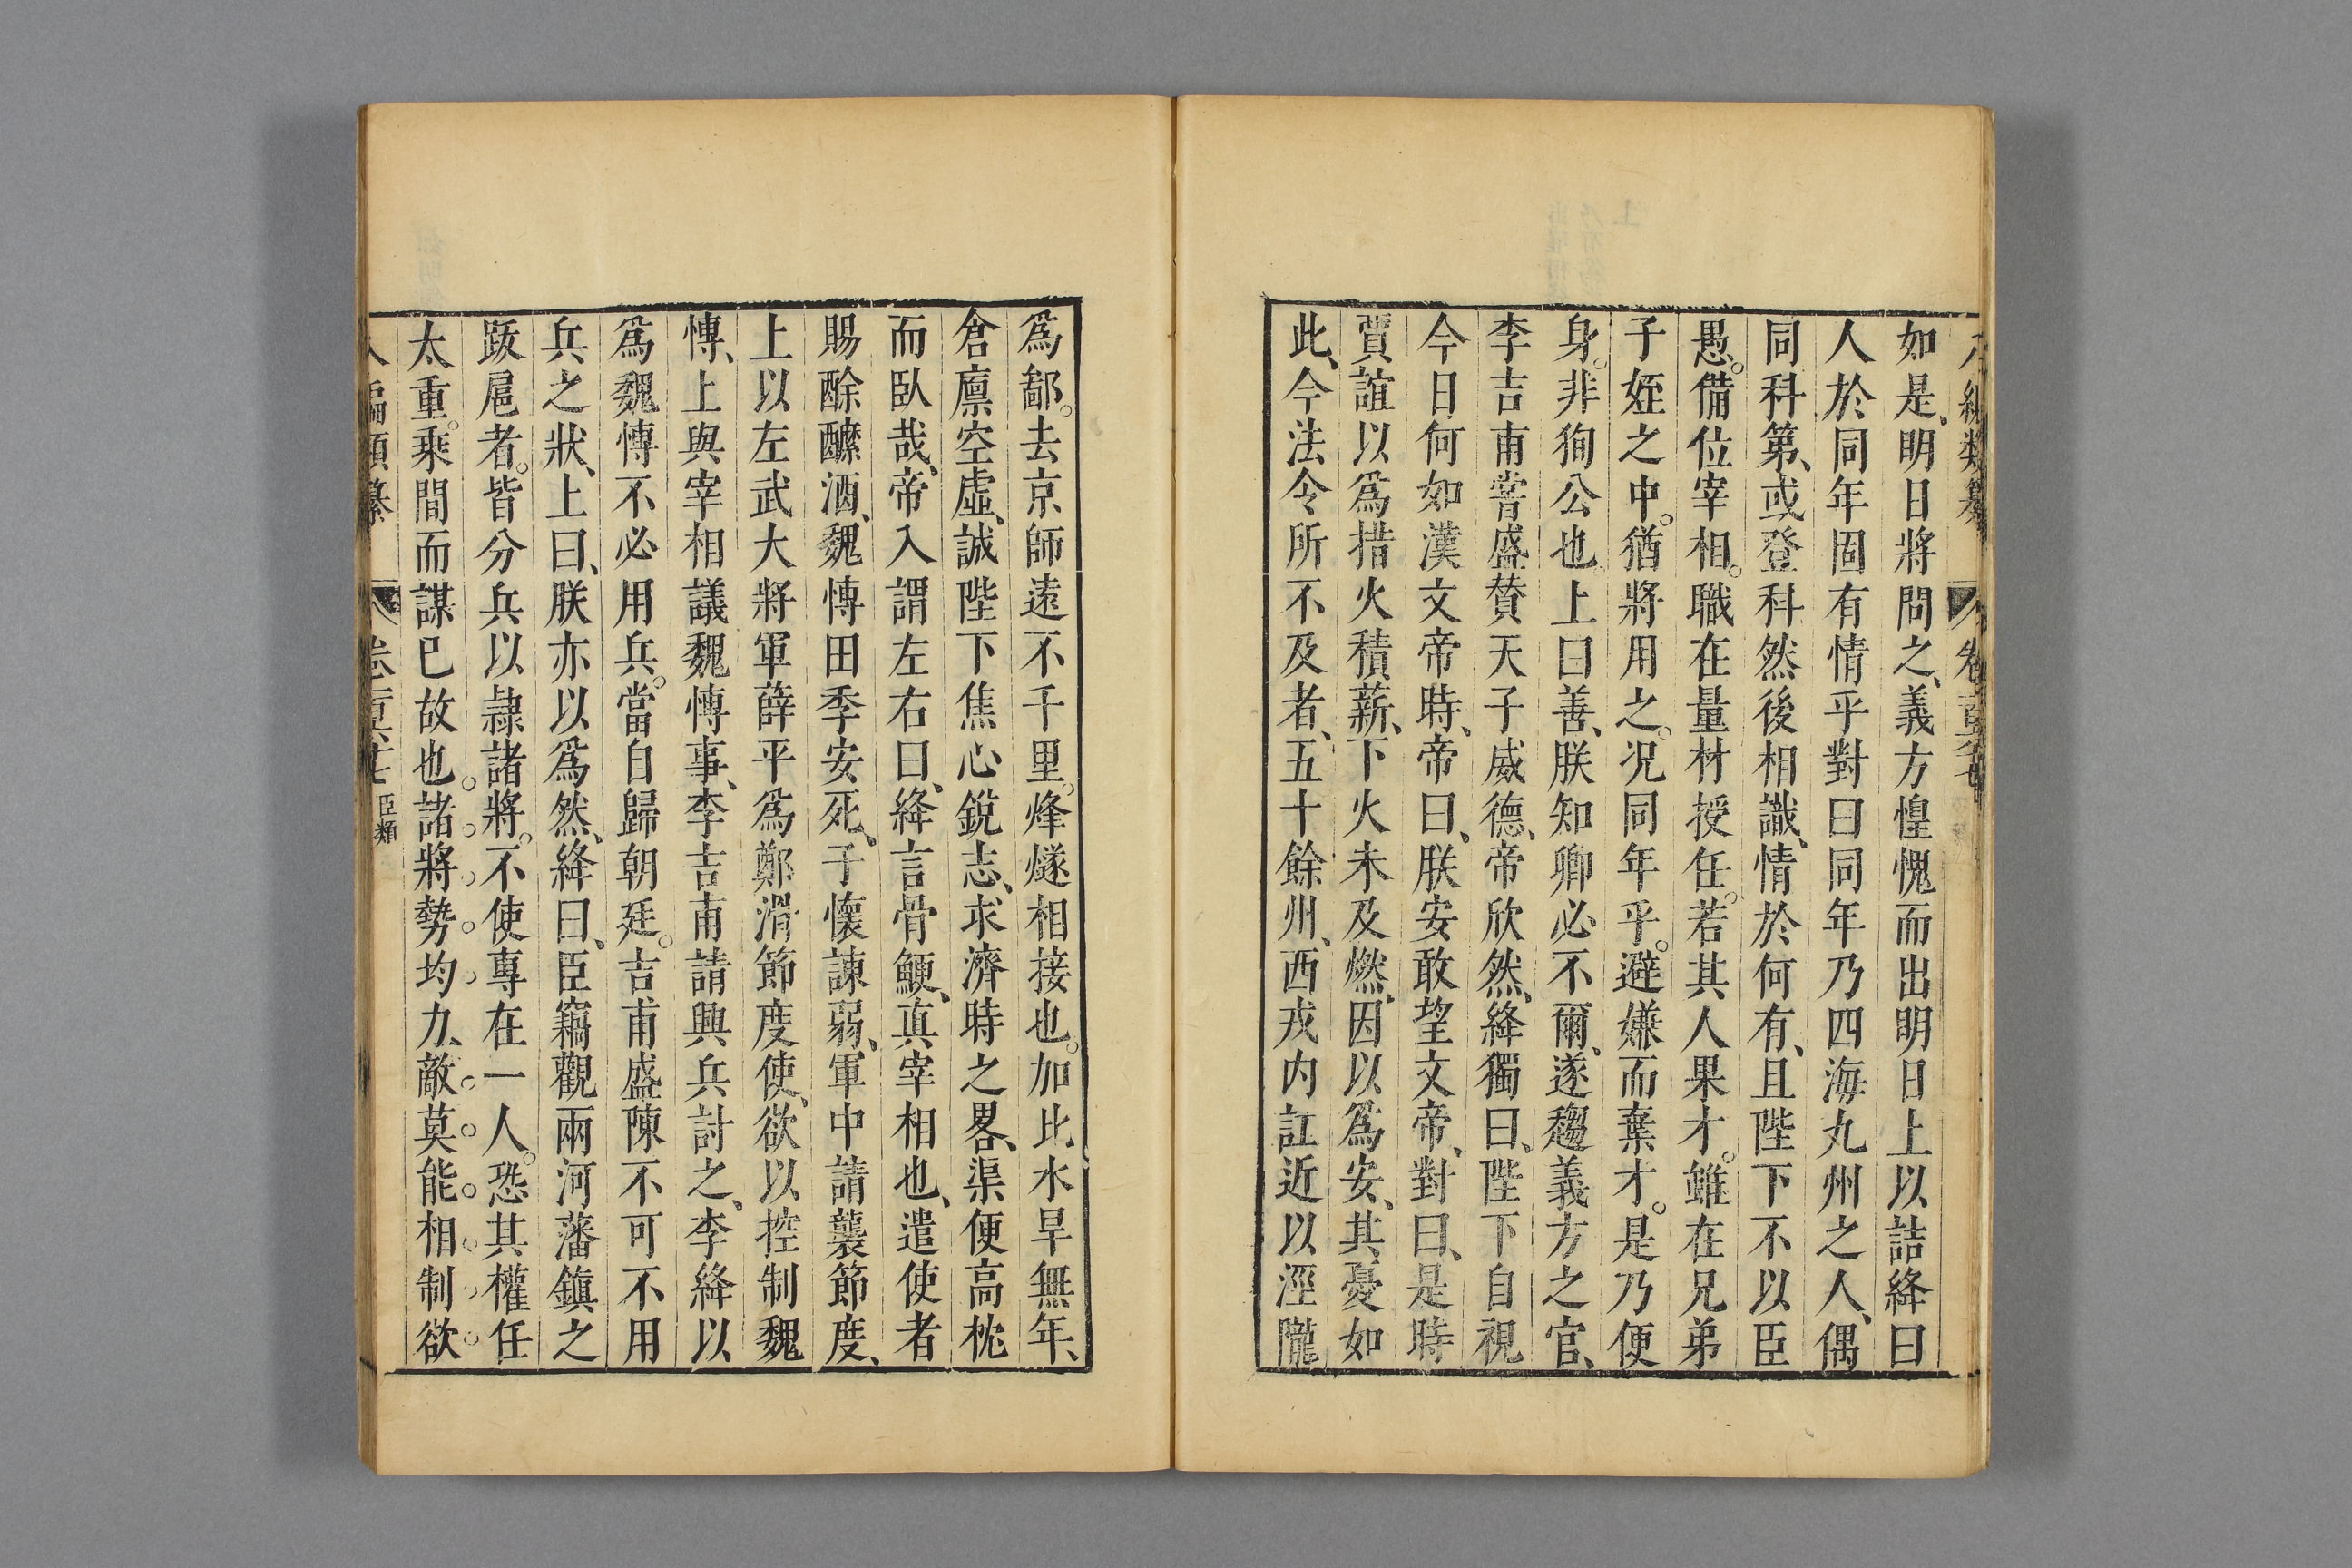 如是、明日將問之、義方惶愧而出明日上以詰絳曰
人於同年固有情乎對曰同年乃四海九州之人、偶
同科第、或登科然後相識、情於何有、且陛下不以臣
愚。備位宰相。職在量材授任。若其人果才。雖在兄弟
子姪之中。猶將用之。況同年乎。避嫌而棄才。是乃便
身。非狥公也上曰善、朕知卿必不爾、遂趨義方之官、
李吉甫嘗盛贊天子威德、帝欣然、絳獨曰、陛下自視
今日何如漢文帝時、帝曰、朕安敢望文帝、對曰、是時
賈誼以爲措火積薪、下火未及燃、因以爲安、其憂如
此、今法令所不及者、五十餘州、西戎内訌近以涇隴
爲鄗。去京師遠不千里。烽燧相接也。加比水旱無年、
倉廪空虛、誠陛下焦心銳志、求濟時之畧、渠便高枕
而臥哉、帝入謂左右曰、絳言骨鯁、真宰相也、遣使者
賜酴醾酒、魏博田季安死、子懷諫弱、軍中請襲節度、
上以左武大將軍薛平爲鄭滑節度使、欲以控制魏
博、上與宰相議魏博事、李吉甫請興兵討之、李絳以
爲魏博不必用兵。當自歸朝廷。吉甫盛陳不可不用
兵之狀、上曰、朕亦以爲然、絳曰、臣竊觀兩河藩鎮之
跋扈者。皆分兵以隷諸將。不使專在一人。恐其權任
太重。乘間而謀已故也。諸將勢均力敵莫能相制欲
編類纂 卷 臣類